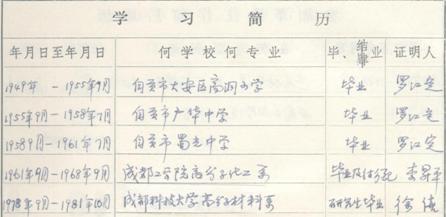 学习简历
年月日至年月日 何学校何专业 毕、结肄业 证明人
1949年 - 1955年7月 自贡市大安区高洞小学 毕业 罗江定
1955年9月 - 1958年7月 自贡市广华中学 毕业 罗江定
1958年9月 - 1961年7月 自贡市蜀光中学 毕业 罗江定
1961年9月 - 1968年9月 成都工学院高分子化工系 毕业及待分配 李昇平
1978年9月 - 1981年10月 成都科技大学高分子材料系 研究生毕业 徐僖